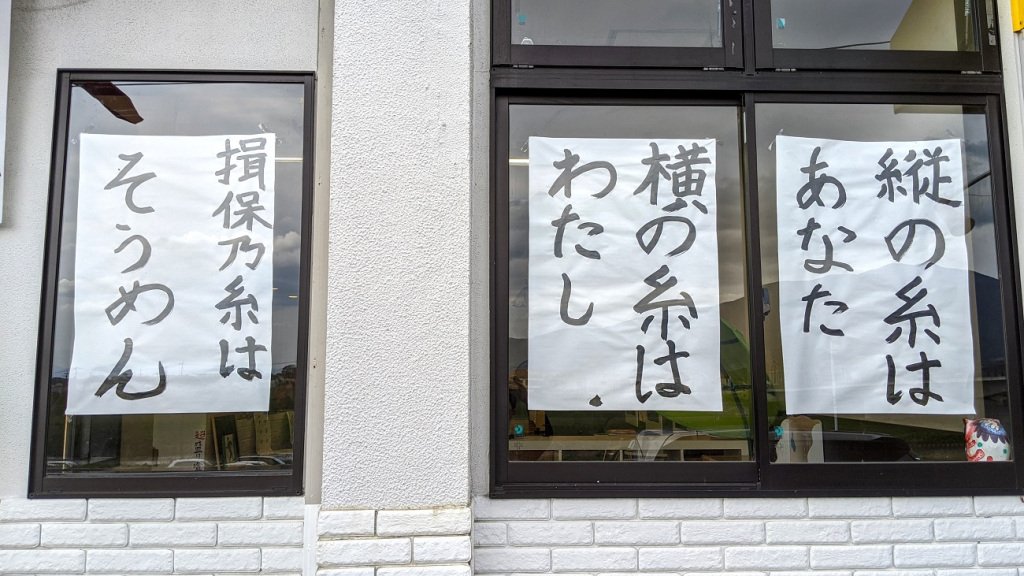 縦の糸は
あなた
横の糸は
わたし
揖保乃糸は
そうめん